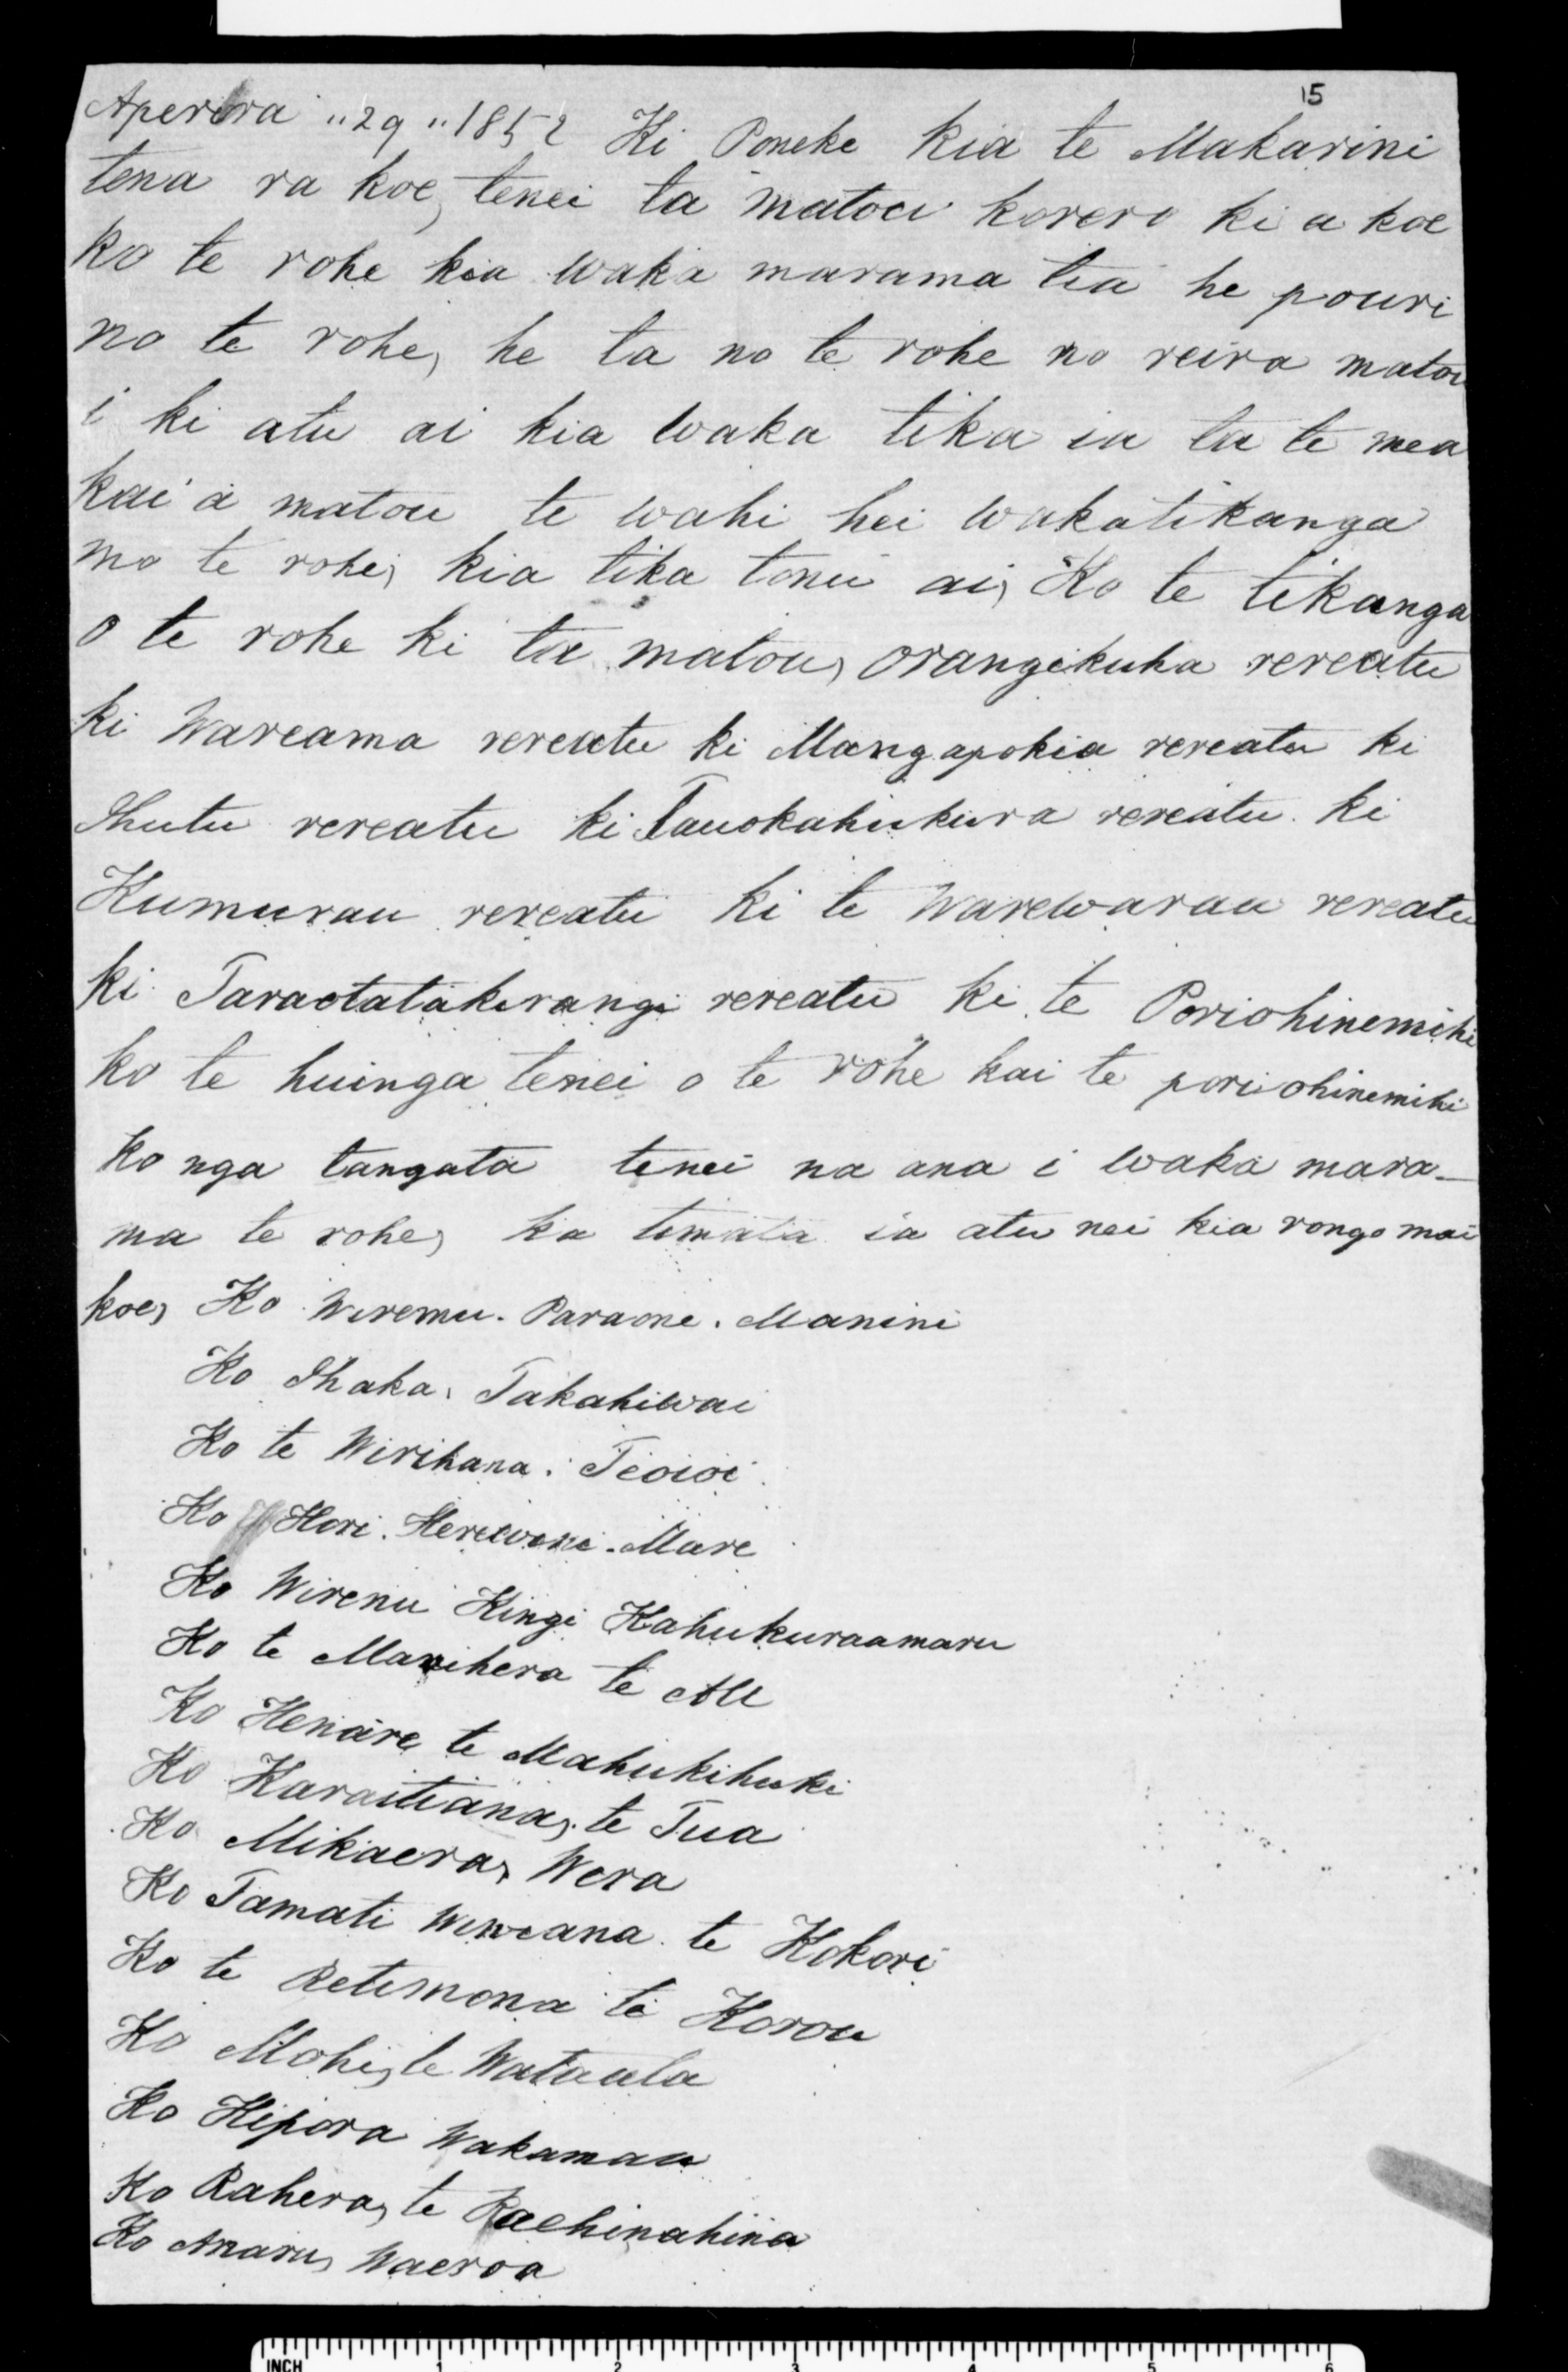 15
Aperira "29" 1852 Ki Poneke kia te Makarini
tena ra koe, tenei ta matou korero ki a koe
ko te rohe kia waka marama tia he pouri
no te rohe, he ta no te rohe no reira matou
i ki atu ai kia waka tika ia ta te mea
kai a matou te wahi hei wakatikanga
mo te rohe, kia tika tonu ai, Ko te tikanga
o te rohe ki ta matou, orangikuha rereatu
ki Wareama rereatu ki Mangapokia rereatu ki
Ihutu rereatu ki Tauokahukura rereatu ki
Kumurau rereatu ki te Warewarau rereatu
ki Taraotatakirangi rereatu ki te Poriohinemihi
ko te huinga tenei o te rohe kai te poriohinemihi
ko nga tangata tenei na ana i waka mara-
ma te rohe, ka timata ia atu nei kia rongo mai
koe, Ko Wiremu. Paraone. Manini
Ko Ihaka, Takahiwai
Ko te Wirihana. Teoioi
Ko Hori. Herewini. Mare
Ko Wiremu Kingi Kahukuraamaru
Ko te Manihera te
Ko Henare te Mahukihuki
Ko Karaitiana, te Tua
Ko Mikaera, Wera
Ko Tamati Wiweana te Kokori
Ko te Retimona te Korou
Ko Mohi, te Wataula
Ko Hipora Wakamau
Ko Rahera, te Raehinahina
Ko Anaru, Waeroa
INCH 1 2 3 4 5 6